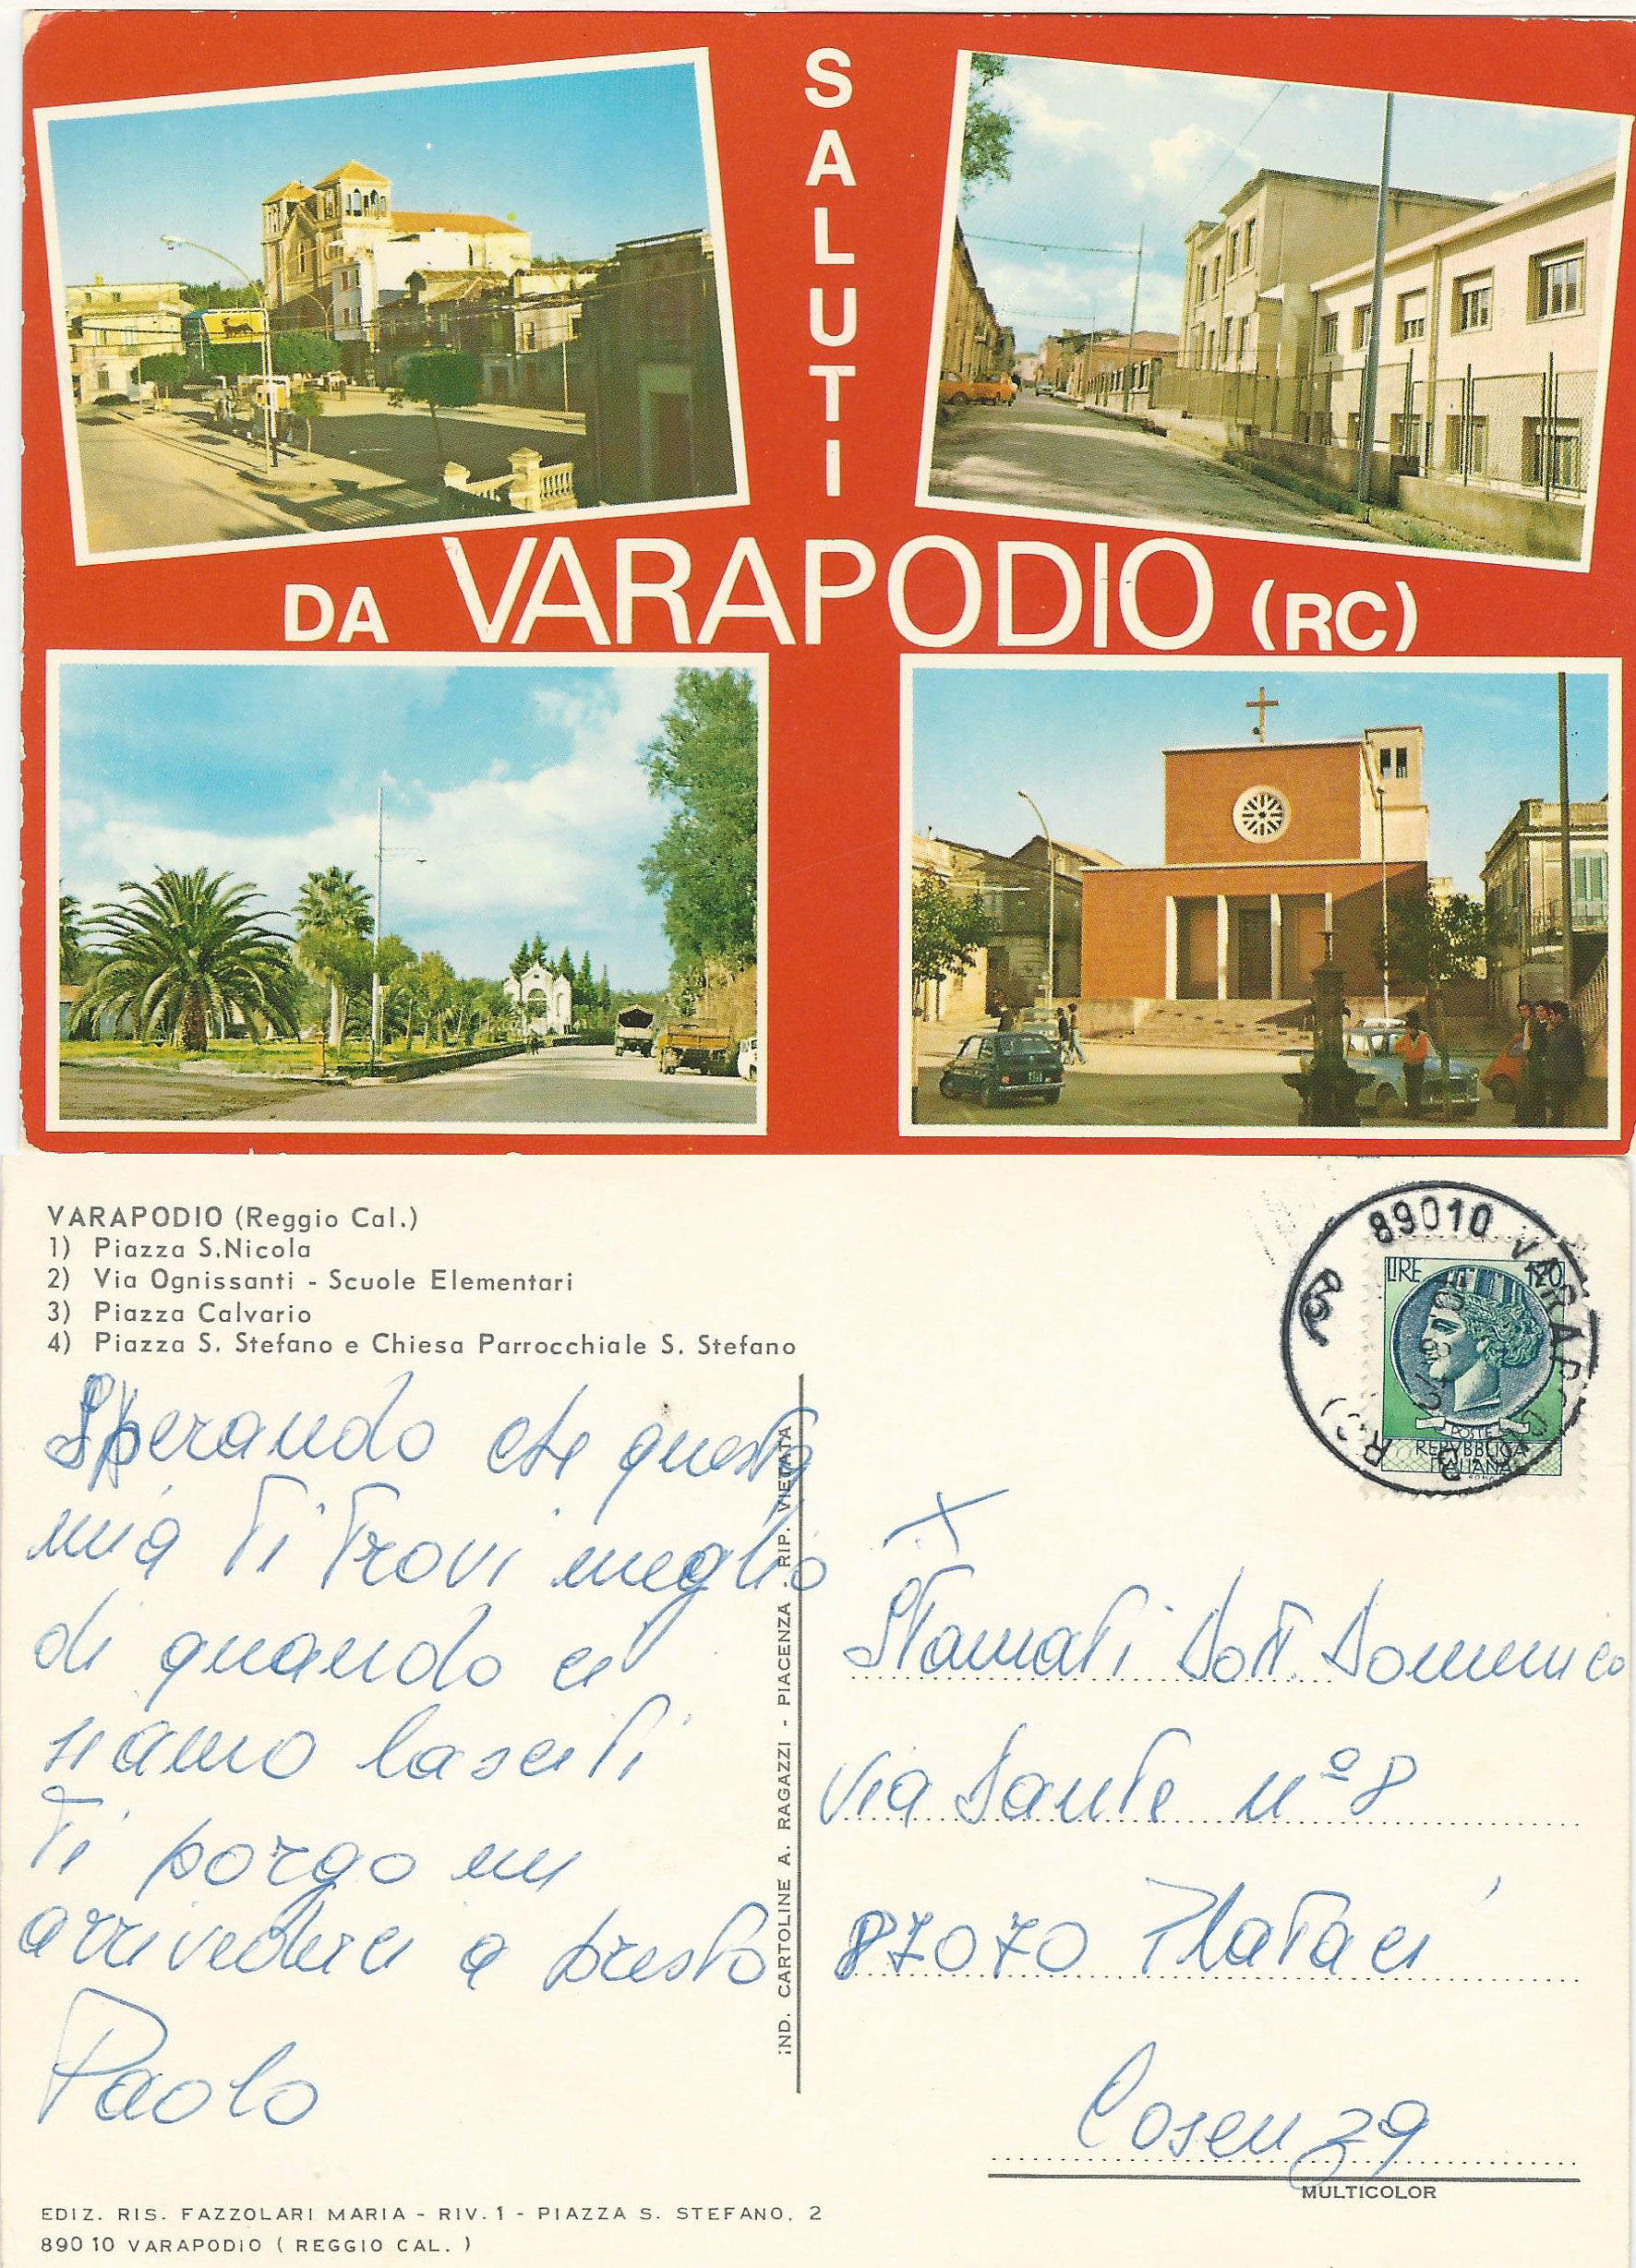 SALUTI
DA VARAPODIO (RC)
VARAPODIO (Reggio Cal.)
1) Piazza S.Nicola
2) Via Ognissanti - Scuole Elementari
3) Piazza Calvario
4) Piazza S. Stefano e Chiesa Parrocchiale S. Stefano
89010 VARAPODIO
LIRE 120
POSTE
REPVBBLICA
ITALIANA
Sperando che questa
mia ti trovi meglio
di quando ci
siamo lasciti
Ti porgo un
arrivederci a presto
Paolo
IND. CARTOLINE A. RAGAZZI - PIACENZA - RIP. VIETATA
Stamati Dott. Domenico
Via Dante nº 8
87070 Plataci
Cosenza
MULTICOLOR
EDIZ. RIS. FAZZOLARI MARIA - RIV. 1 - PIAZZA S. STEFANO, 2
89010 VARAPODIO ( REGGIO CAL. )